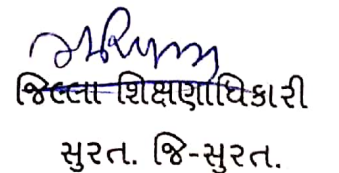 જિલ્લા શિક્ષણાધિકારી
સુરત. જિ-સુરત.